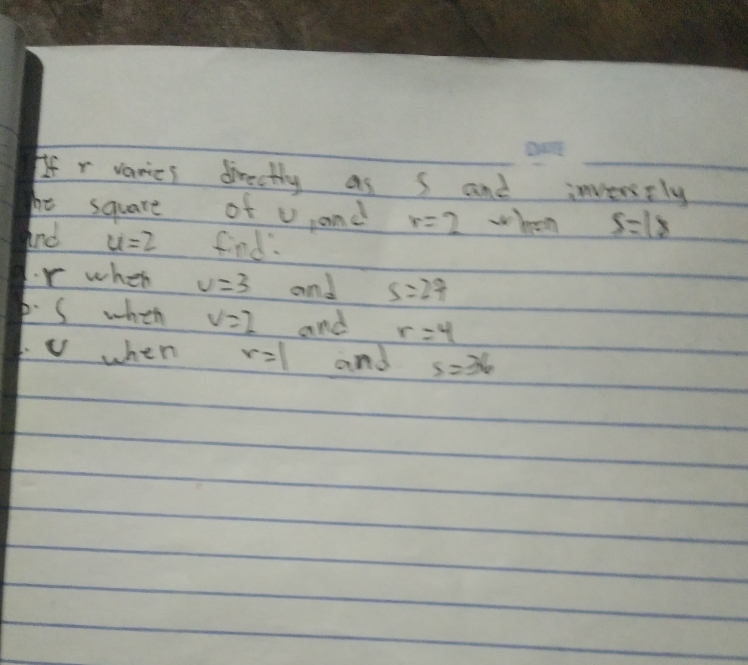 DATE
If r varies directly as s and inversely
he square of u, and r=2 when s=18
and u=2 find:
a. r when u=3 and s=27
b. s when u=2 and r=4
. u when r=1 and s=36